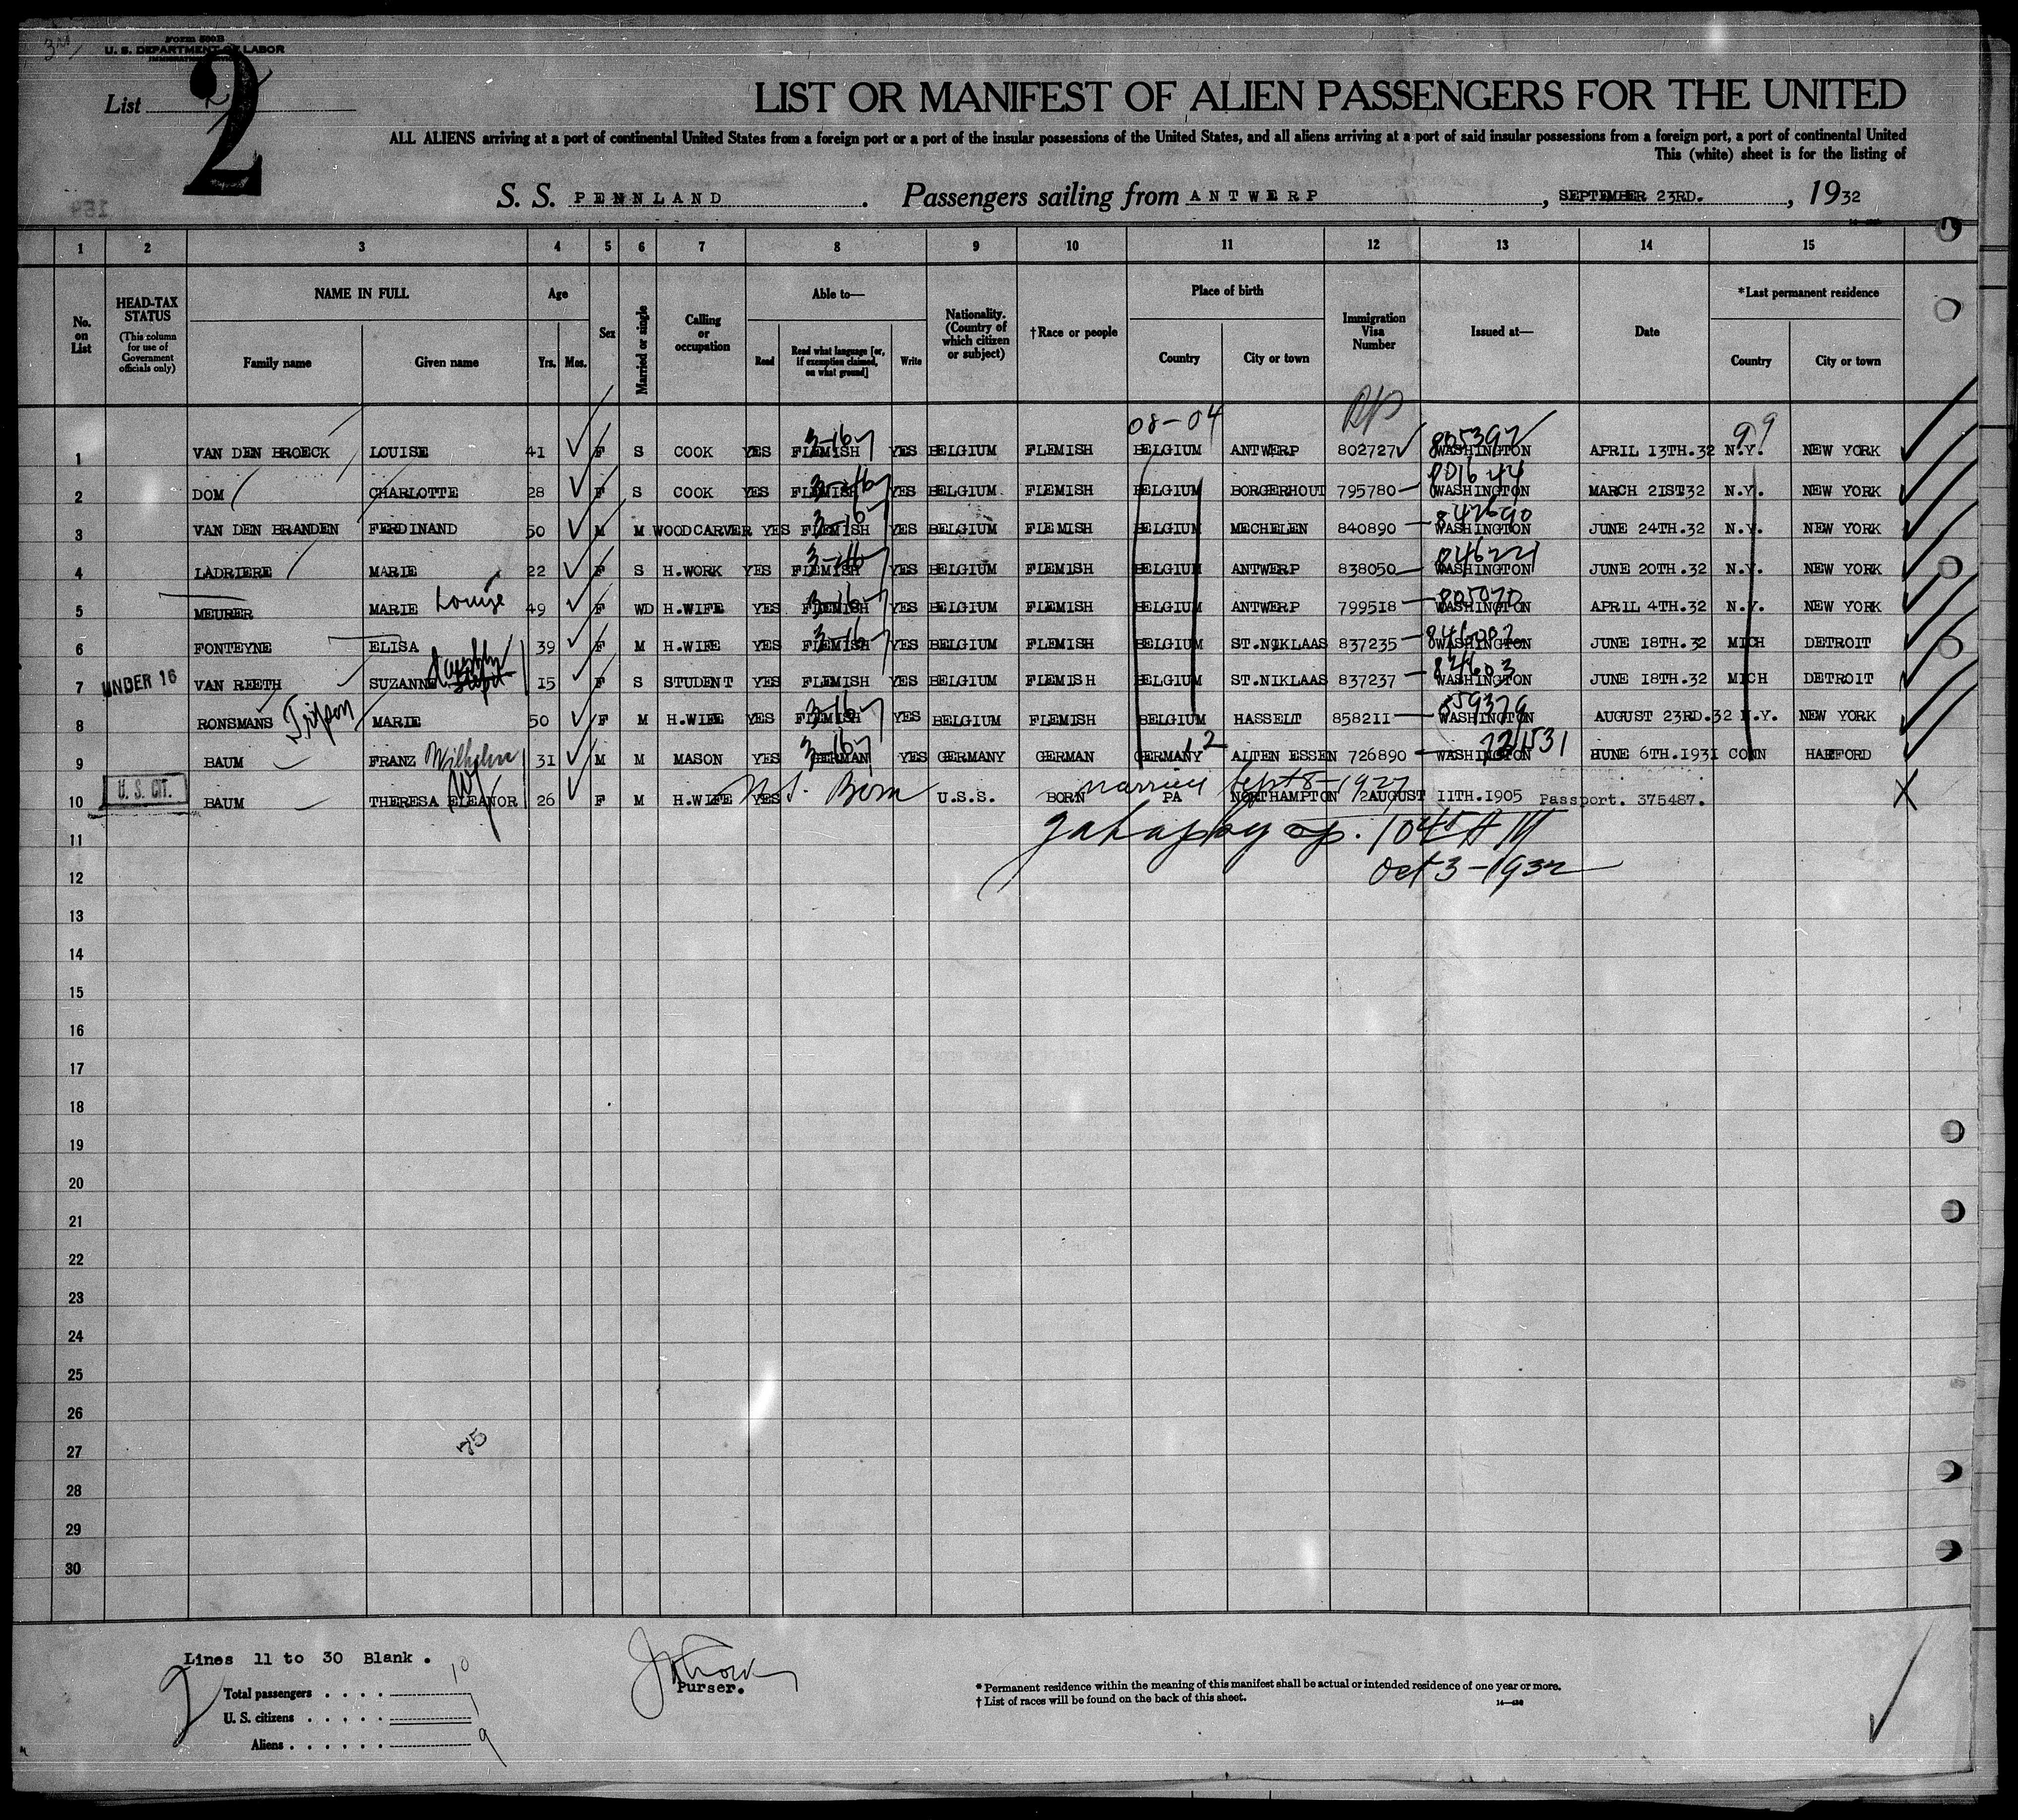 Form 500B
U. S. DEPARTMENT OF LABOR
List 2
LIST OR MANIFEST OF ALIEN PASSENGERS FOR THE UNITED
ALL ALIENS arriving at a port of continental United States from a foreign port or a port of the insular possessions of the United States, and all aliens arriving at a port of said insular possessions from a foreign port, a port of continental United
This (white) sheet is for the listing of
S. S. PENNLAND. Passengers sailing from ANTWERP, SEPTEMBER 23RD., 1932
1 2 3 4 5 6 7 8 9 10 11 12 13 14 15
No. on List
HEAD-TAX STATUS (This column for use of Government officials only)
NAME IN FULL Family name Given name
Age Yrs. Mos.
Sex
Married or single
Calling or occupation
Able to— Read Read what language [or, if exemption claimed, on what ground] Write
Nationality. (Country of which citizen or subject)
†Race or people
Place of birth Country City or town
Immigration Visa Number
Issued at—
Date
*Last permanent residence Country City or town
08-04 99
1 VAN DEN BROECK LOUISE 41 F S COOK YES FLEMISH 3-16 YES BELGIUM FLEMISH BELGIUM ANTWERP 802727 WASHINGTON 805392 APRIL 13TH.32 N.Y. NEW YORK
2 DOM CHARLOTTE 28 F S COOK YES FLEMISH 3-16 YES BELGIUM FLEMISH BELGIUM BORGERHOUT 795780 WASHINGTON 801644 MARCH 21ST32 N.Y. NEW YORK
3 VAN DEN BRANDEN FERDINAND 50 M M WOODCARVER YES FLEMISH 3-16 YES BELGIUM FLEMISH BELGIUM MECHELEN 840890 WASHINGTON 842690 JUNE 24TH.32 N.Y. NEW YORK
4 LADRIERE MARIE 22 F S H.WORK YES FLEMISH 3-16 YES BELGIUM FLEMISH BELGIUM ANTWERP 838050 WASHINGTON 846221 JUNE 20TH.32 N.Y. NEW YORK
5 MEURER MARIE Louise 49 F WD H.WIFE YES FLEMISH 3-16 YES BELGIUM FLEMISH BELGIUM ANTWERP 799518 WASHINGTON APRIL 4TH.32 N.Y. NEW YORK
6 FONTEYNE ELISA 39 F M H.WIFE YES FLEMISH 3-16 YES BELGIUM FLEMISH BELGIUM ST.NIKLAAS 837235 WASHINGTON JUNE 18TH.32 MICH DETROIT
7 UNDER 16 VAN REETH SUZANNE 15 F S STUDENT YES FLEMISH YES BELGIUM FLEMISH BELGIUM ST.NIKLAAS 837237 WASHINGTON JUNE 18TH.32 MICH DETROIT
8 RONSMANS MARIE 50 F M H.WIFE YES FLEMISH 3-16 YES BELGIUM FLEMISH BELGIUM HASSELT 858211 WASHINGTON 859379 AUGUST 23RD.32 N.Y. NEW YORK
9 BAUM FRANZ Wilhelm 31 M M MASON YES GERMAN 3-16 YES GERMANY GERMAN GERMANY 12 ALTEN ESSEN 726890 WASHINGTON 721531 HUNE 6TH.1931 CONN HARFORD
10 U. S. CIT. BAUM THERESA ELEANOR 26 F M H.WIFE YES U.S. Born U.S.S. BORN PA NORTHAMPTON AUGUST 11TH.1905 Passport. 375487.
married Sept 8-1927
1045 AM
Oct 3-1932
11
12
13
14
15
16
17
18
19
20
21
22
23
24
25
26
27
28
29
30
75
Lines 11 to 30 Blank.
2
Total passengers . . . . 10
U. S. citizens . . . . . 1
Aliens . . . . . . 9
Purser.
* Permanent residence within the meaning of this manifest shall be actual or intended residence of one year or more.
† List of races will be found on the back of this sheet.